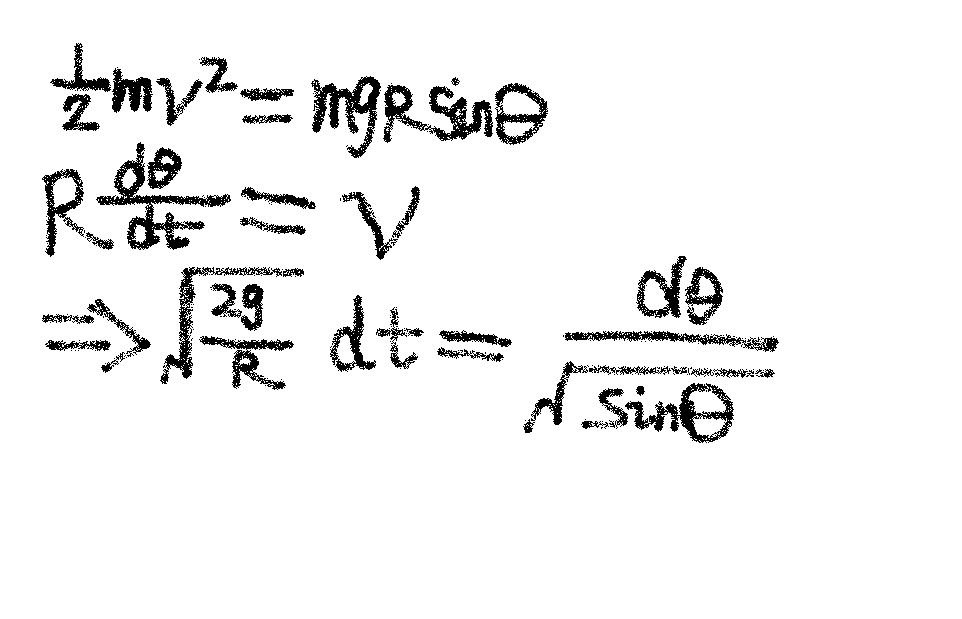 ½mv² = mgR sinθ
R dθ/dt = v
⇒ √(2g/R) dt = dθ/√(sinθ)